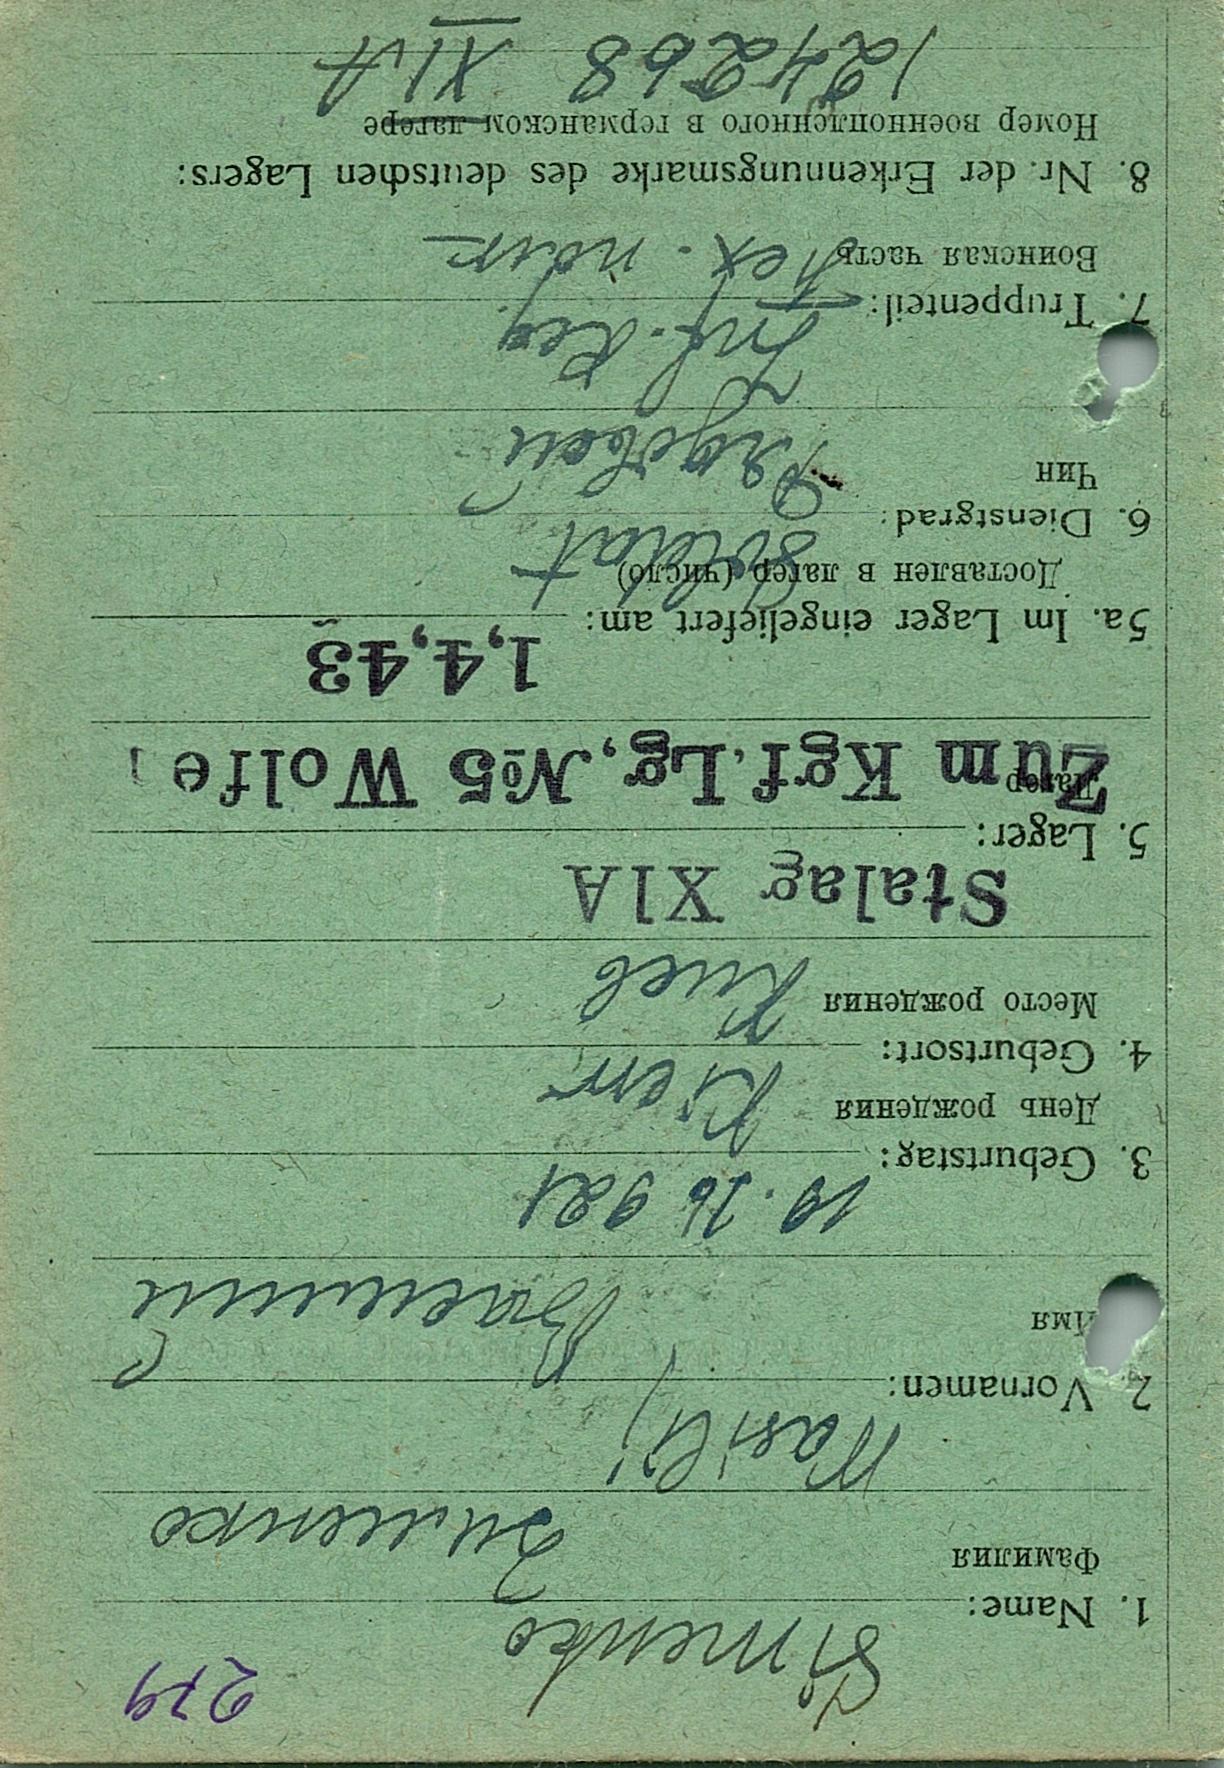 279
1. Name: Simenko
Фамилия Зименко
2. Vornamen: Wasilij
Имя Василий
3. Geburtstag: 19. 10 921
День рождения
4. Geburtsort: Kiew
Место рождения Киев
Stalag XIA
5. Lager:
Лагер Zum Kgf. Lg, №5 Wolfe
1,4,43
5a. Im Lager eingeliefert am:
Доставлен в лагер (число)
6. Dienstgrad: Soldat
Чин Рядовой
7. Truppenteil: Inf. Reg.
Воинская часть пех. полк
8. Nr. der Erkennungsmarke des deutschen Lagers:
Номер военнопленного в германском лагере
124268 XIA